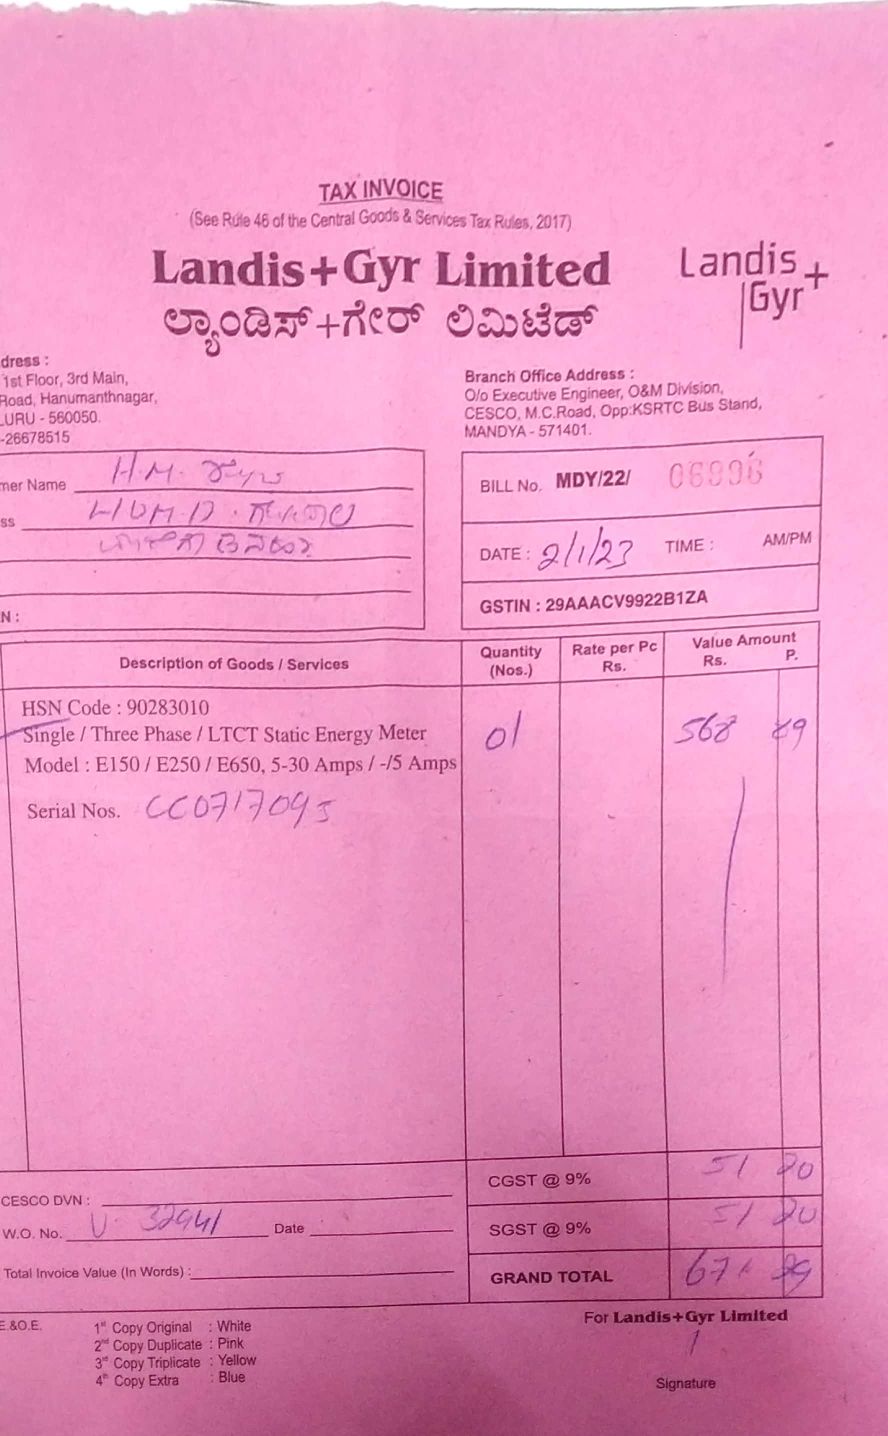 TAX INVOICE
(See Rule 46 of the Central Goods & Services Tax Rules, 2017)
Landis+Gyr Limited
Landis+
Gyr
ಲ್ಯಾಂಡಿಸ್+ಗೇರ್ ಲಿಮಿಟೆಡ್
dress :
1st Floor, 3rd Main,
Road, Hanumanthnagar,
LURU - 560050.
-26678515
Branch Office Address :
O/o Executive Engineer, O&M Division,
CESCO, M.C.Road, Opp:KSRTC Bus Stand,
MANDYA - 571401.
mer Name H.M.
ss
N :
BILL No. MDY/22/ 06996
DATE : 2/1/23 TIME : AM/PM
GSTIN : 29AAACV9922B1ZA
Description of Goods / Services Quantity (Nos.) Rate per Pc Rs. Value Amount Rs. P.
HSN Code : 90283010
Single / Three Phase / LTCT Static Energy Meter 01 568 89
Model : E150 / E250 / E650, 5-30 Amps / -/5 Amps
Serial Nos. CC0717095
CGST @ 9% 51 20
CESCO DVN :
W.O. No. U 32941 Date
SGST @ 9% 51 20
Total Invoice Value (In Words) :
GRAND TOTAL 671
E.&O.E.
1st Copy Original : White
2nd Copy Duplicate : Pink
3rd Copy Triplicate : Yellow
4th Copy Extra : Blue
For Landis+Gyr Limited
Signature